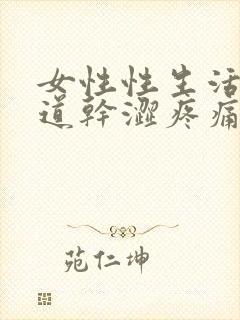 女性性生活
道幹澀疼痛
苑仁坤